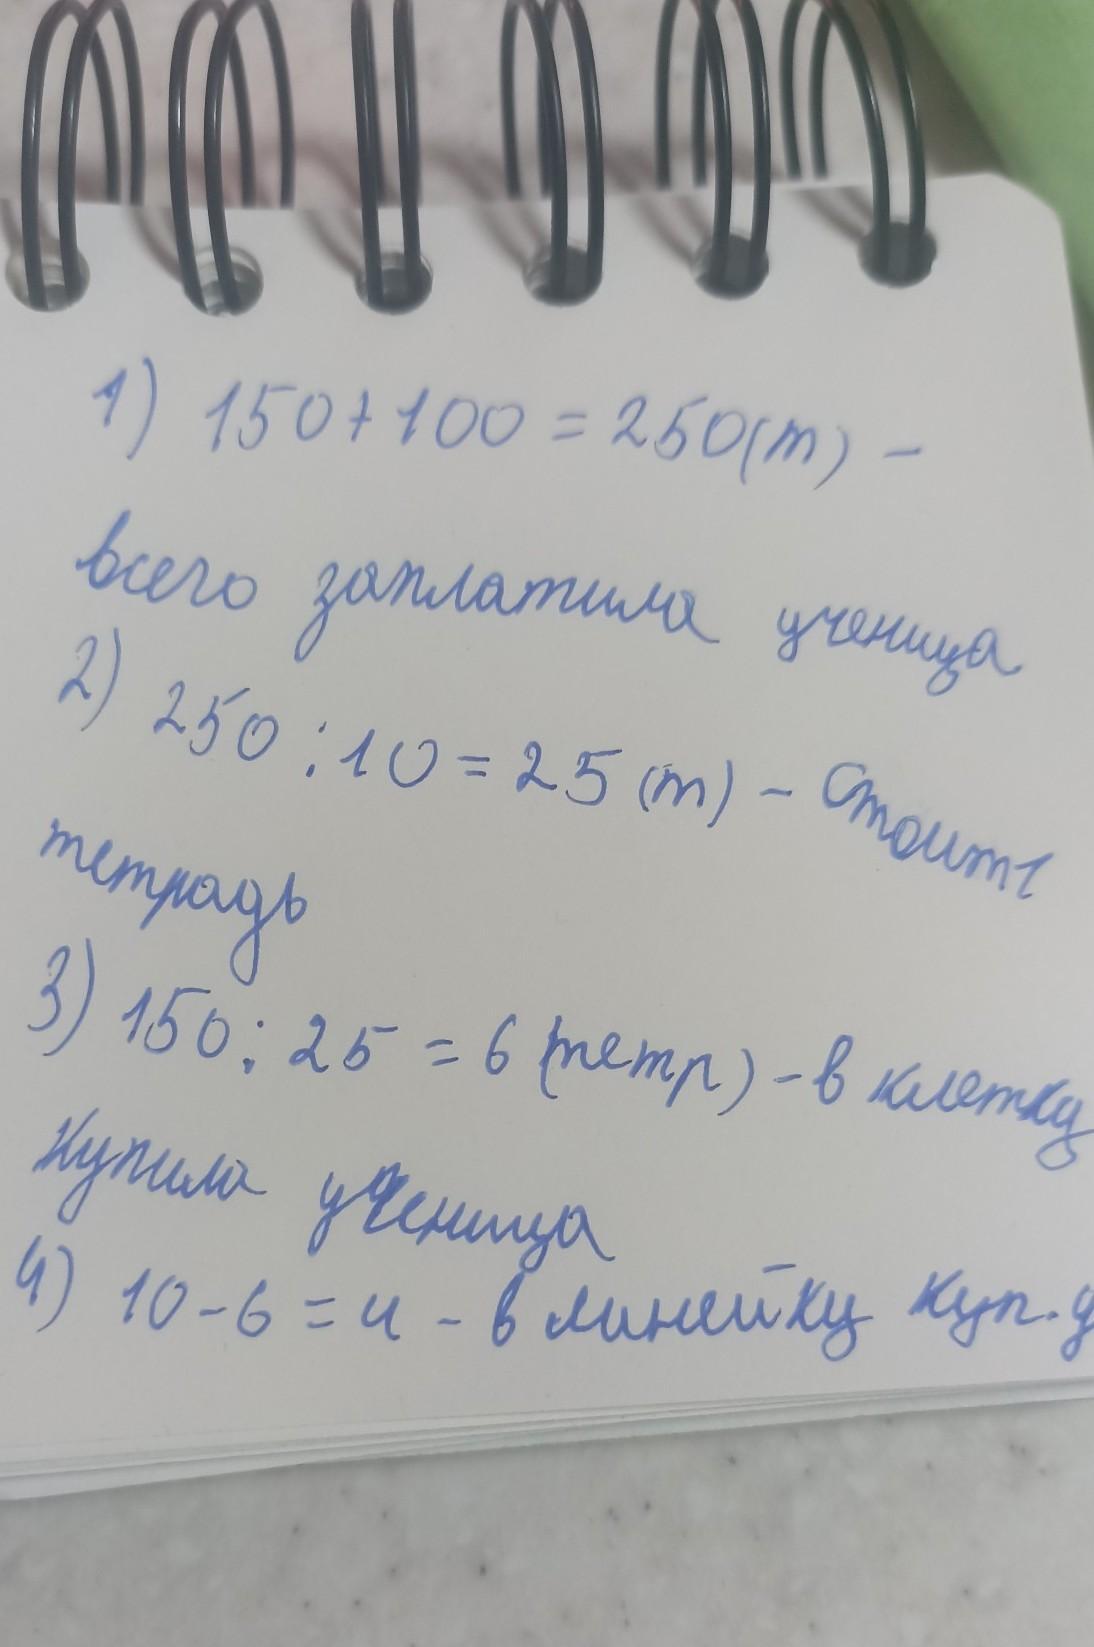 1) 150+100=250(т) -
всего заплатила ученица
2) 250:10=25(т) - стоит 1
тетрадь
3) 150:25=6(тетр) - в клетку
купила ученица
4) 10-6=4 - в линейку куп. у